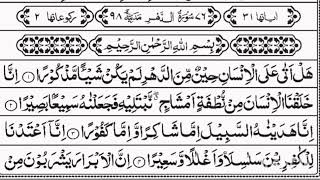 اٰیاتها ٣١ ٧٦ سُوْرَةُ الدَّهْرِ مَدَنِيَّةٌ ٩٨ رکوعاتها ٢
بِسْمِ اللّٰهِ الرَّحْمٰنِ الرَّحِيْمِ
هَلْ اَتٰى عَلَى الْاِنْسَانِ حِيْنٌ مِّنَ الدَّهْرِ لَمْ يَكُنْ شَيْـًٔا مَّذْكُوْرًا ١ اِنَّا
خَلَقْنَا الْاِنْسَانَ مِنْ نُّطْفَةٍ اَمْشَاجٍ ۖ نَّبْتَلِيْهِ فَجَعَلْنٰهُ سَمِيْعًۢا بَصِيْرًا ٢
اِنَّا هَدَيْنٰهُ السَّبِيْلَ اِمَّا شَاكِرًا وَّ اِمَّا كَفُوْرًا ٣ اِنَّاۤ اَعْتَدْنَا
لِلْكٰفِرِيْنَ سَلٰسِلَا۟ وَاَغْلٰلًا وَّسَعِيْرًا ٤ اِنَّ الْاَبْرَارَ يَشْرَبُوْنَ مِنْ